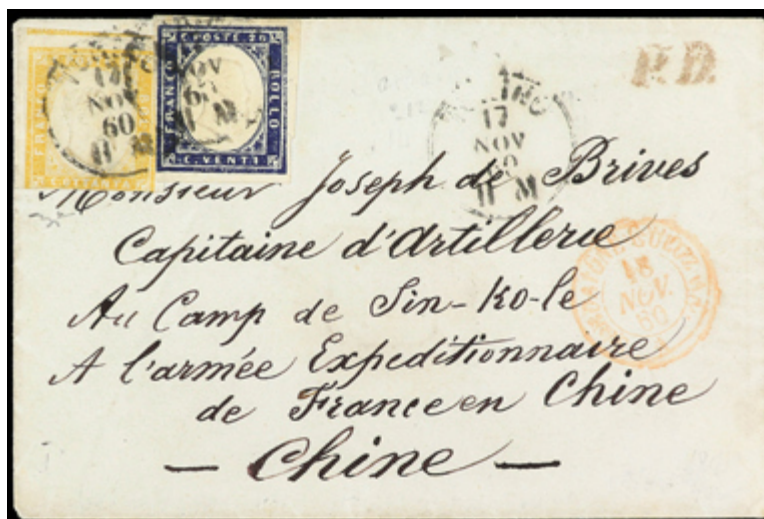 C. POSTE. 20
FRANCO
BOLLO
C. VENTI
17
NOV
60
11 M
17
NOV
11 M
P.D.
18
NOV.
60
Monsieur Joseph de Brives
Capitaine d'Artillerie
Au Camp de Sin-Ko-le
A l'armée Expeditionnaire
de France en Chine
— Chine —